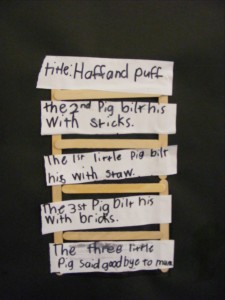 title: Haff and puff
the 2nd Pig bilt his
with sticks.
The 1st little pig bilt
his with staw.
The 3st Pig bilt his
with bricks.
The three little
Pig said goodbye to mum